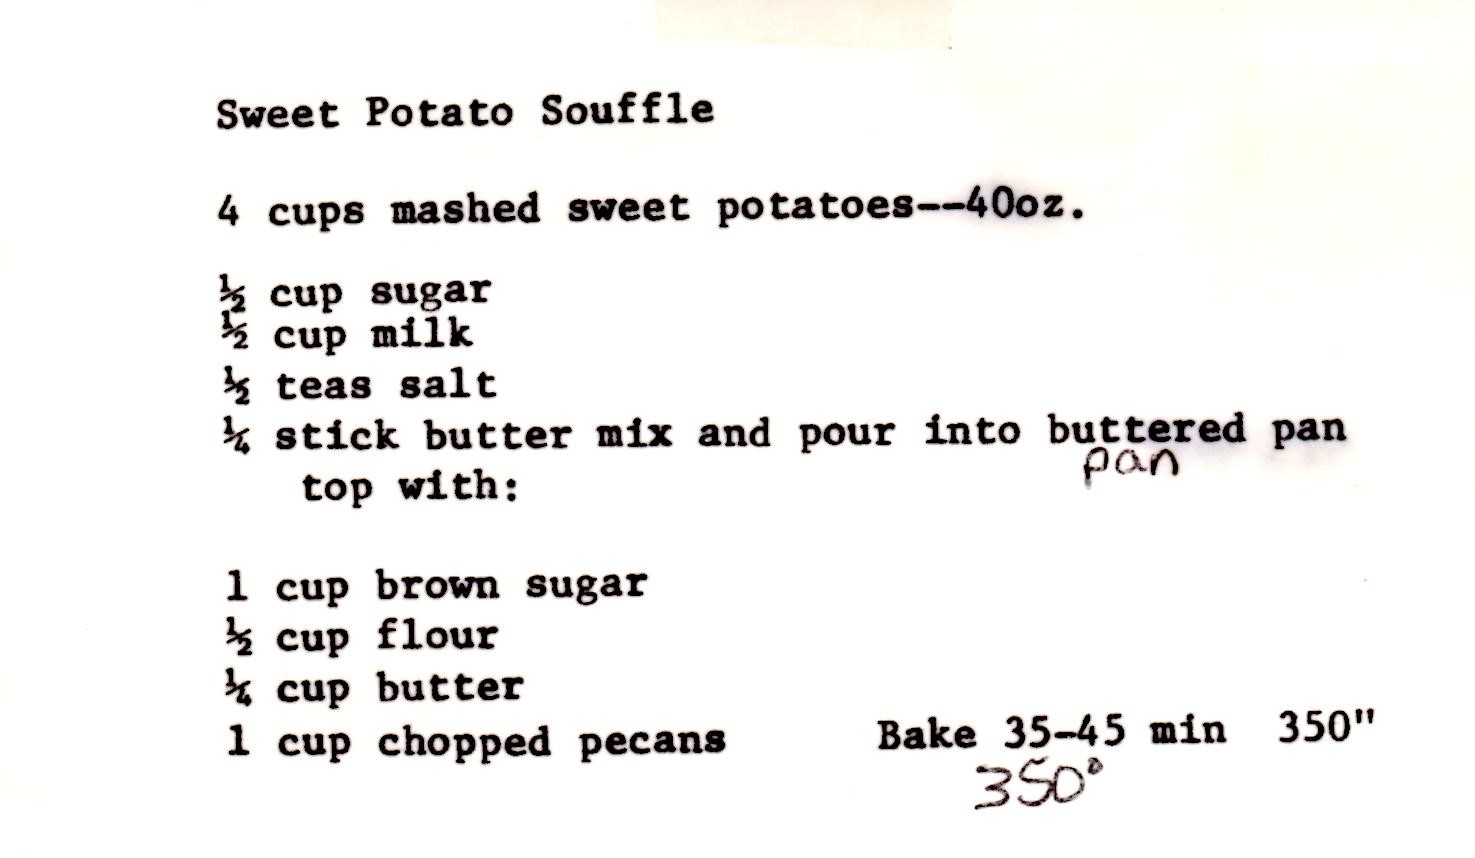 Sweet Potato Souffle
4 cups mashed sweet potatoes--40oz.
½ cup sugar
½ cup milk
½ teas salt
¼ stick butter mix and pour into buttered pan
pan
top with:
1 cup brown sugar
½ cup flour
¼ cup butter
1 cup chopped pecans Bake 35-45 min 350"
350°